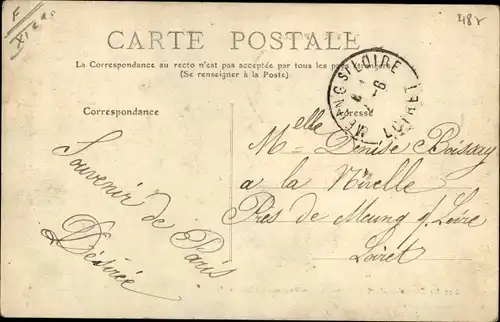 F
XI e a.
48r
CARTE POSTALE
La Correspondance au recto n'est pas acceptée par tous les pays étrangers
(Se renseigner à la Poste)
MEUNG S/ LOIRE
LOIRET
Correspondance
Adresse
Souvenir de Paris
Désirée
Melle Denise Boissay
a la Nivelle
Près de Meung s/ Loire
Loiret